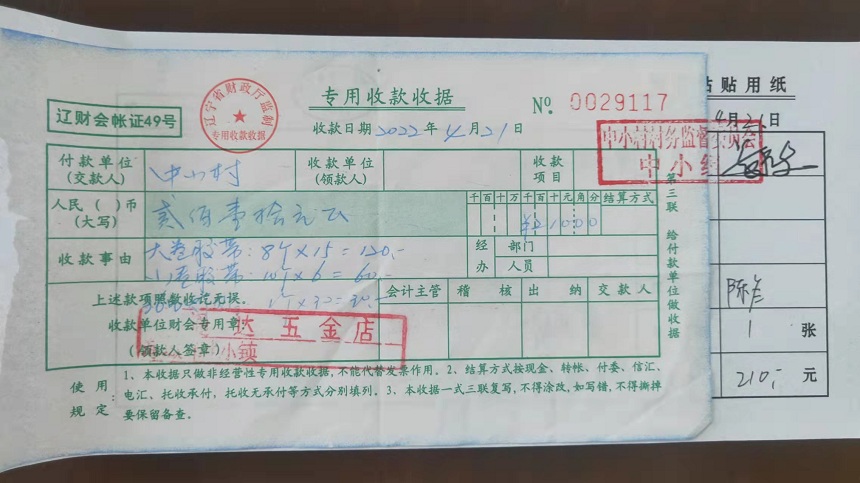 专用收款收据
辽宁省财政厅监制
专用收款收据
辽财会帐证49号
收款日期2022年4月21日
No. 0029117
付款单位
(交款人)
中小村
收款单位
(领款人)
收款
项目
人民（ ）币
(大写)
贰佰壹拾元正
千百十万千百十元角分
结算方式
¥21000
收款事由
大卷胶带:8个×15=120.-
小卷胶带:10个×6=60.-
1个×30=30.-
经办
部门
人员
上述款项照数收讫无误。
收款单位财会专用章
(领款人签章)
会计主管
稽核
出纳
交款人
达五金店
小镇
第三联 给付款单位做收据
使用规定:
1、本收据只做非经营性专用收款收据,不能代替发票作用。2、结算方式按现金、转帐、付委、信汇、
电汇、托收承付，托收无承付等方式分别填列。3、本收据一式三联复写,不得涂改,如写错,不得撕掉
要保留备查。
中小村村务监督委员会
中小
贴用纸
4月21日
1 张
210.- 元